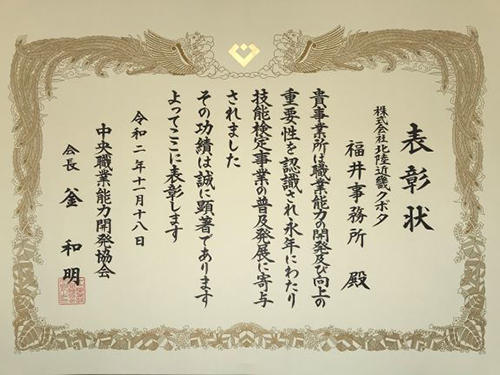 表彰状
株式会社北陸近畿クボタ
福井事務所 殿
貴事業所は職業能力の開発及び向上の
重要性を認識され永年にわたり
技能検定事業の普及発展に寄与
されました
その功績は誠に顕著であります
よってここに表彰します
令和二年十一月十八日
中央職業能力開発協会
会長 釜 和明